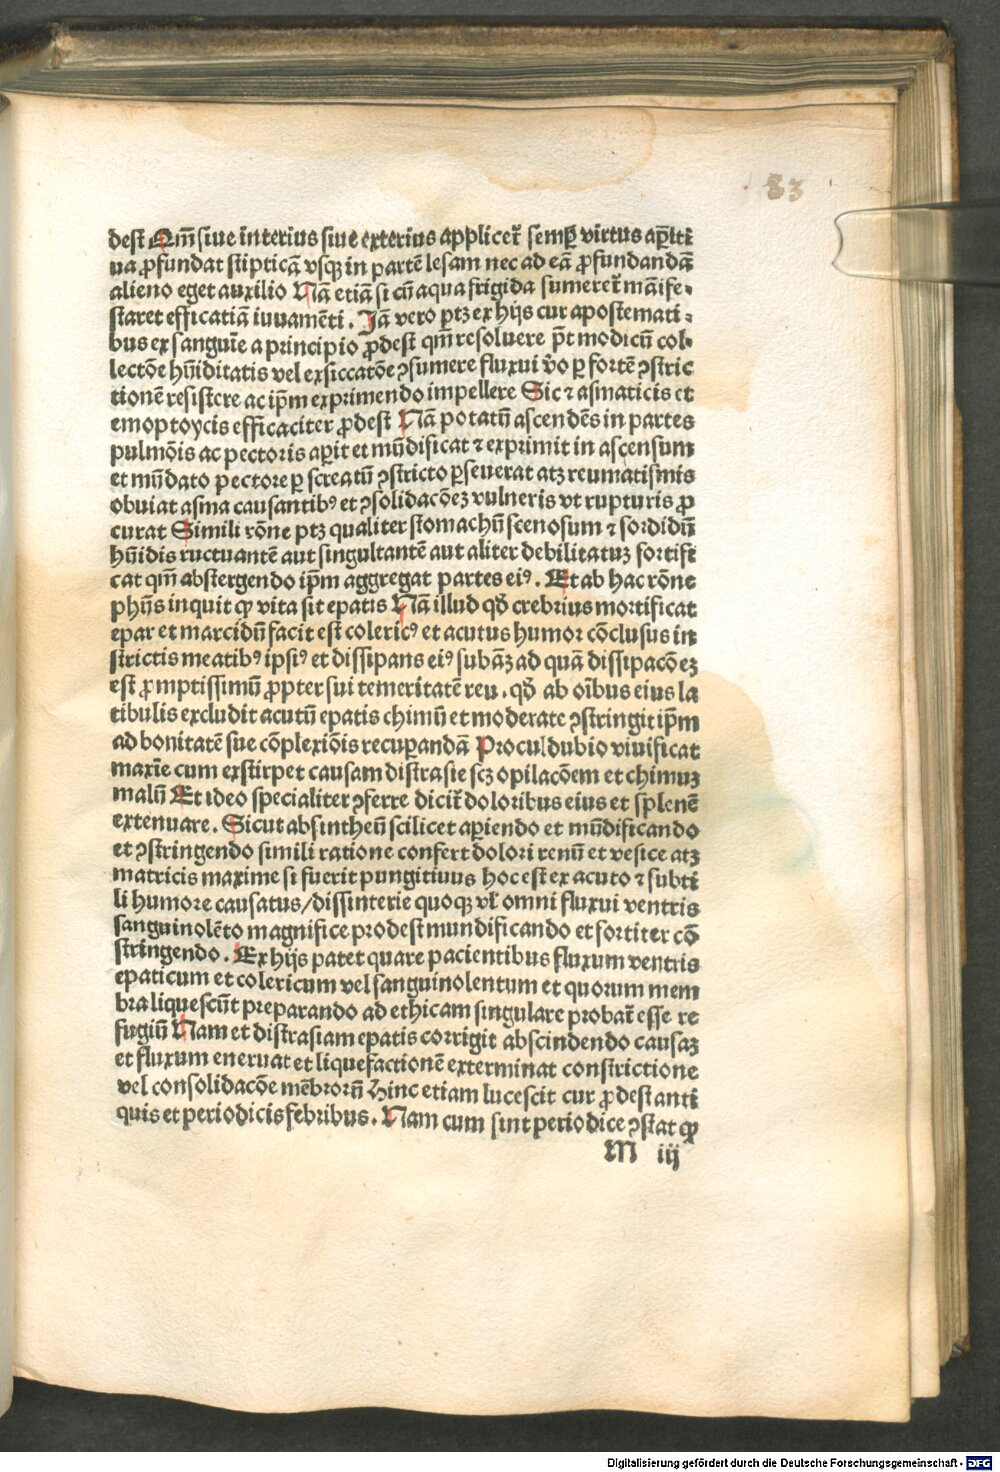 83
dest Qm̄ siue īnterius siue exterius applicet᷑ semꝑ virtus aꝑiti
ua ꝓfundat stipticā vsqꝫ in partē lesam nec ad eā ꝓfundandā
alieno eget auxilio Nā etiā si cū aqua frigida sumeret᷑ māife⸗
staret efficatiā iuuamēti. Jā vero ptꝫ ex hijs cur apostemati⸗
bus ex sanguīe a principio ꝓdest qm̄ resoluere pt̄ modicū col⸗
lectōe hūiditatis vel exsiccatōe ꝯsumere fluxui v̄o ꝑ fortē ꝯstric
tionē resistere ac ip̄m exprimendo impellere Sic ⁊ asmaticis et
emoptoycis efficaciter ꝓdest Nā potatū ascendēs in partes
pulmōis ac pectoris aꝑit et mūdificat ⁊ exprimit in ascensum
et mūdato pectore ꝑ screatū ꝯstricto ꝑseuerat atꝫ reumatismis
obuiat asma causantibꝰ et ꝯsolidacōeꝫ vulneris vt rupturis ꝓ
curat Simili rōne ptꝫ qualiter stomachū scenosum ⁊ sordidū
hūidis ructuantē aut singultantē aut aliter debilitatuꝫ fortifi
cat qm̄ abstergendo ip̄m aggregat partes eiꝰ. Et ab hac rōne
phijs inquit ꝙ vita sit epatis Nā illud qd̄ crebrius mortificat
epar et marcidū facit est colericꝰ et acutus humor cōclusus in
strictis meatibꝰ ipsiꝰ et dissipans eiꝰ subāꝫ ad quā dissipacōeꝫ
est ꝓmptissimū ꝓpter sui temeritatē reu. qd̄ ab oībus eius la
tibulis excludit acutū epatis chimū et moderate ꝯstringit ip̄m
ad bonitatē sue cōplexiōis recuꝑandā Proculdubio viuificat
maxīe cum exstirpet causam distrasie scꝫ opilacōem et chimuꝫ
malū Et ideo specialiter ꝯferre dicit᷑ doloribus eius et splenē
extenuare. Sicut absintheū scilicet aꝑiendo et mūdificando
et ꝯstringendo simili ratione confert dolori renū et vesice atꝫ
matricis maxime si fuerit pungitiuus hoc est ex acuto ⁊ subti
li humore causatus/dissinterie quoqꝫ vl̓ omni fluxui ventris
sanguinolēto magnifice prodest mundificando et fortiter cō
stringendo. Ex hijs patet quare pacientibus fluxum ventris
epaticum et colericum vel sanguinolentum et quorum mem
bra liquescūt preparando ad ethicam singulare probat᷑ esse re
fugiū Nam et distrasiam epatis corrigit abscindendo causaꝫ
et fluxum eneruat et liquefactionē exterminat constrictione
vel consolidacōe mēbrorū Hinc etiam lucescit cur ꝓdest anti
quis et periodicis febribus. Nam cum sint periodice ꝯstat ꝙ
M iij
Digitalisierung gefördert durch die Deutsche Forschungsgemeinschaft - DFG